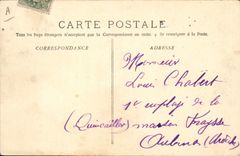 A
CARTE POSTALE
Tous les Pays étrangers n'acceptent pas la Correspondance au recto. (Se renseigner à la Poste).
CORRESPONDANCE
ADRESSE
Monsieur
Louis Chabert
1er employé de la
(Quincailler) maison Fraysse
Aubenas (Ardèche)